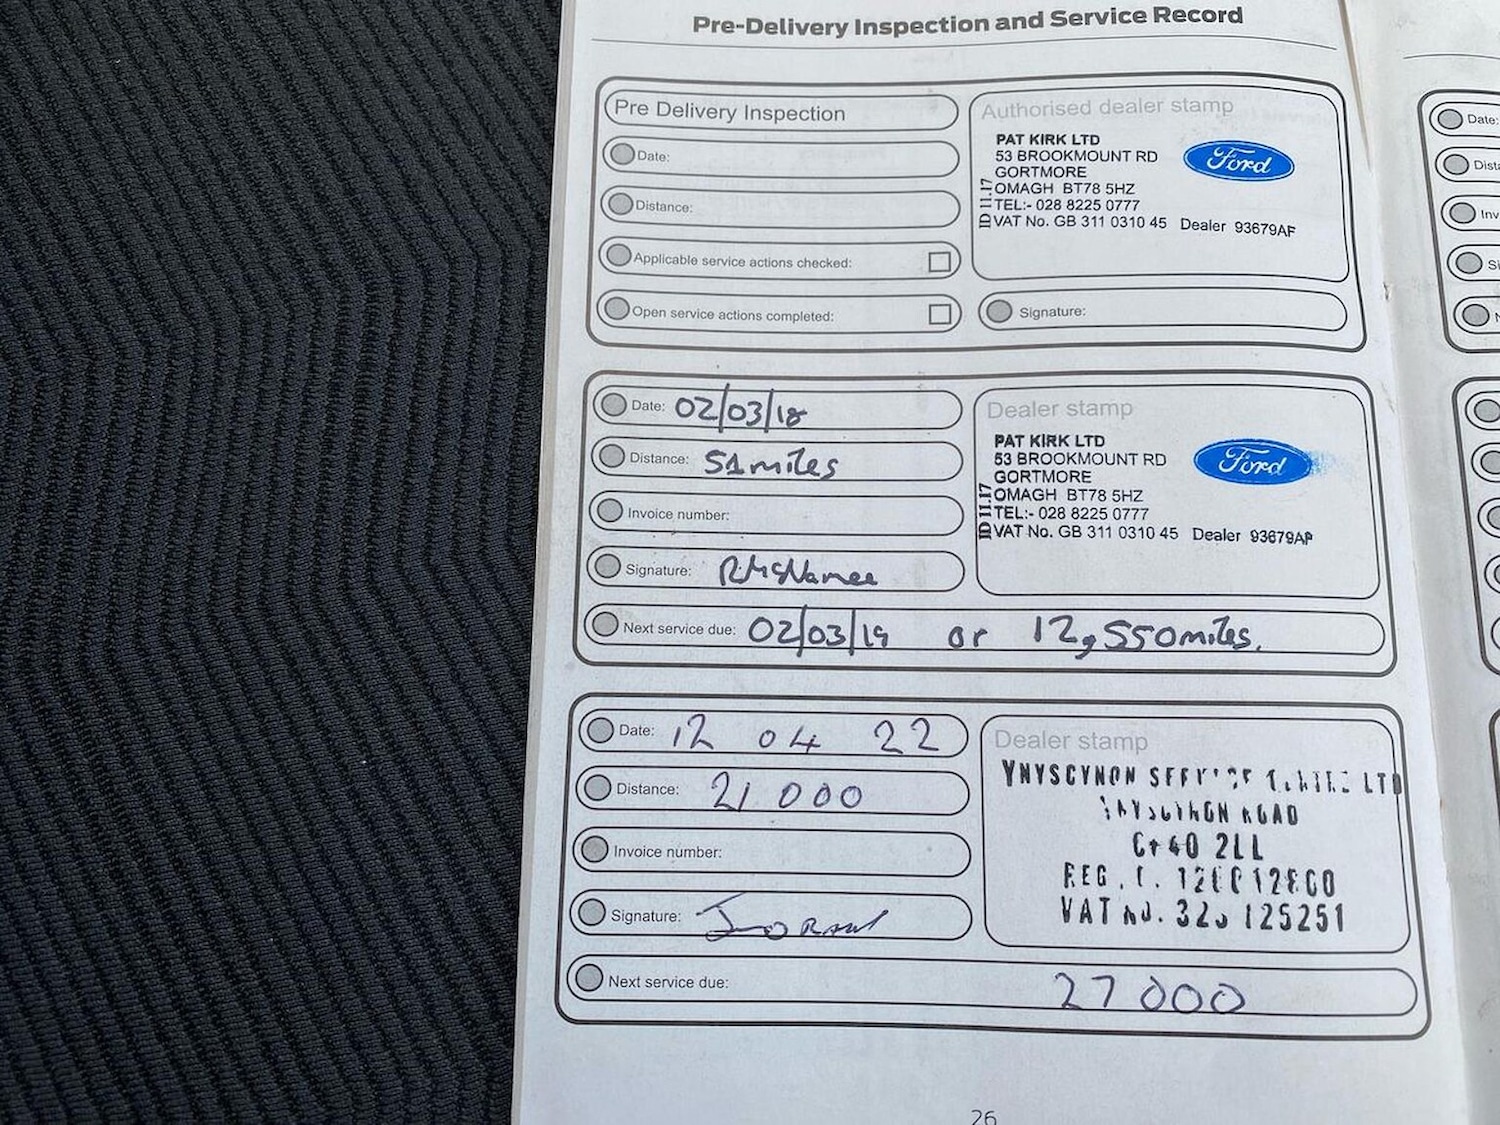 Pre-Delivery Inspection and Service Record
Pre Delivery Inspection
Date:
Distance:
Applicable service actions checked:
Open service actions completed:
Authorised dealer stamp
PAT KIRK LTD
53 BROOKMOUNT RD
GORTMORE
OMAGH BT78 5HZ
TEL:- 028 8225 0777
VAT No. GB 311 0310 45 Dealer 93679AF
ID 11.17
Ford
Signature:
Date: 02/03/18
Distance: 51miles
Invoice number:
Signature: RMcNamee
Next service due: 02/03/19 or 12,550miles.
Dealer stamp
PAT KIRK LTD
53 BROOKMOUNT RD
GORTMORE
OMAGH BT78 5HZ
TEL:- 028 8225 0777
VAT No. GB 311 0310 45 Dealer 93679AF
ID 11.17
Ford
Date: 12 04 22
Distance: 21 000
Invoice number:
Signature:
Next service due: 27 000
Dealer stamp
YNYSCYNON LTD
ROAD
2LL
REG.
VAT 125251
26
Date: